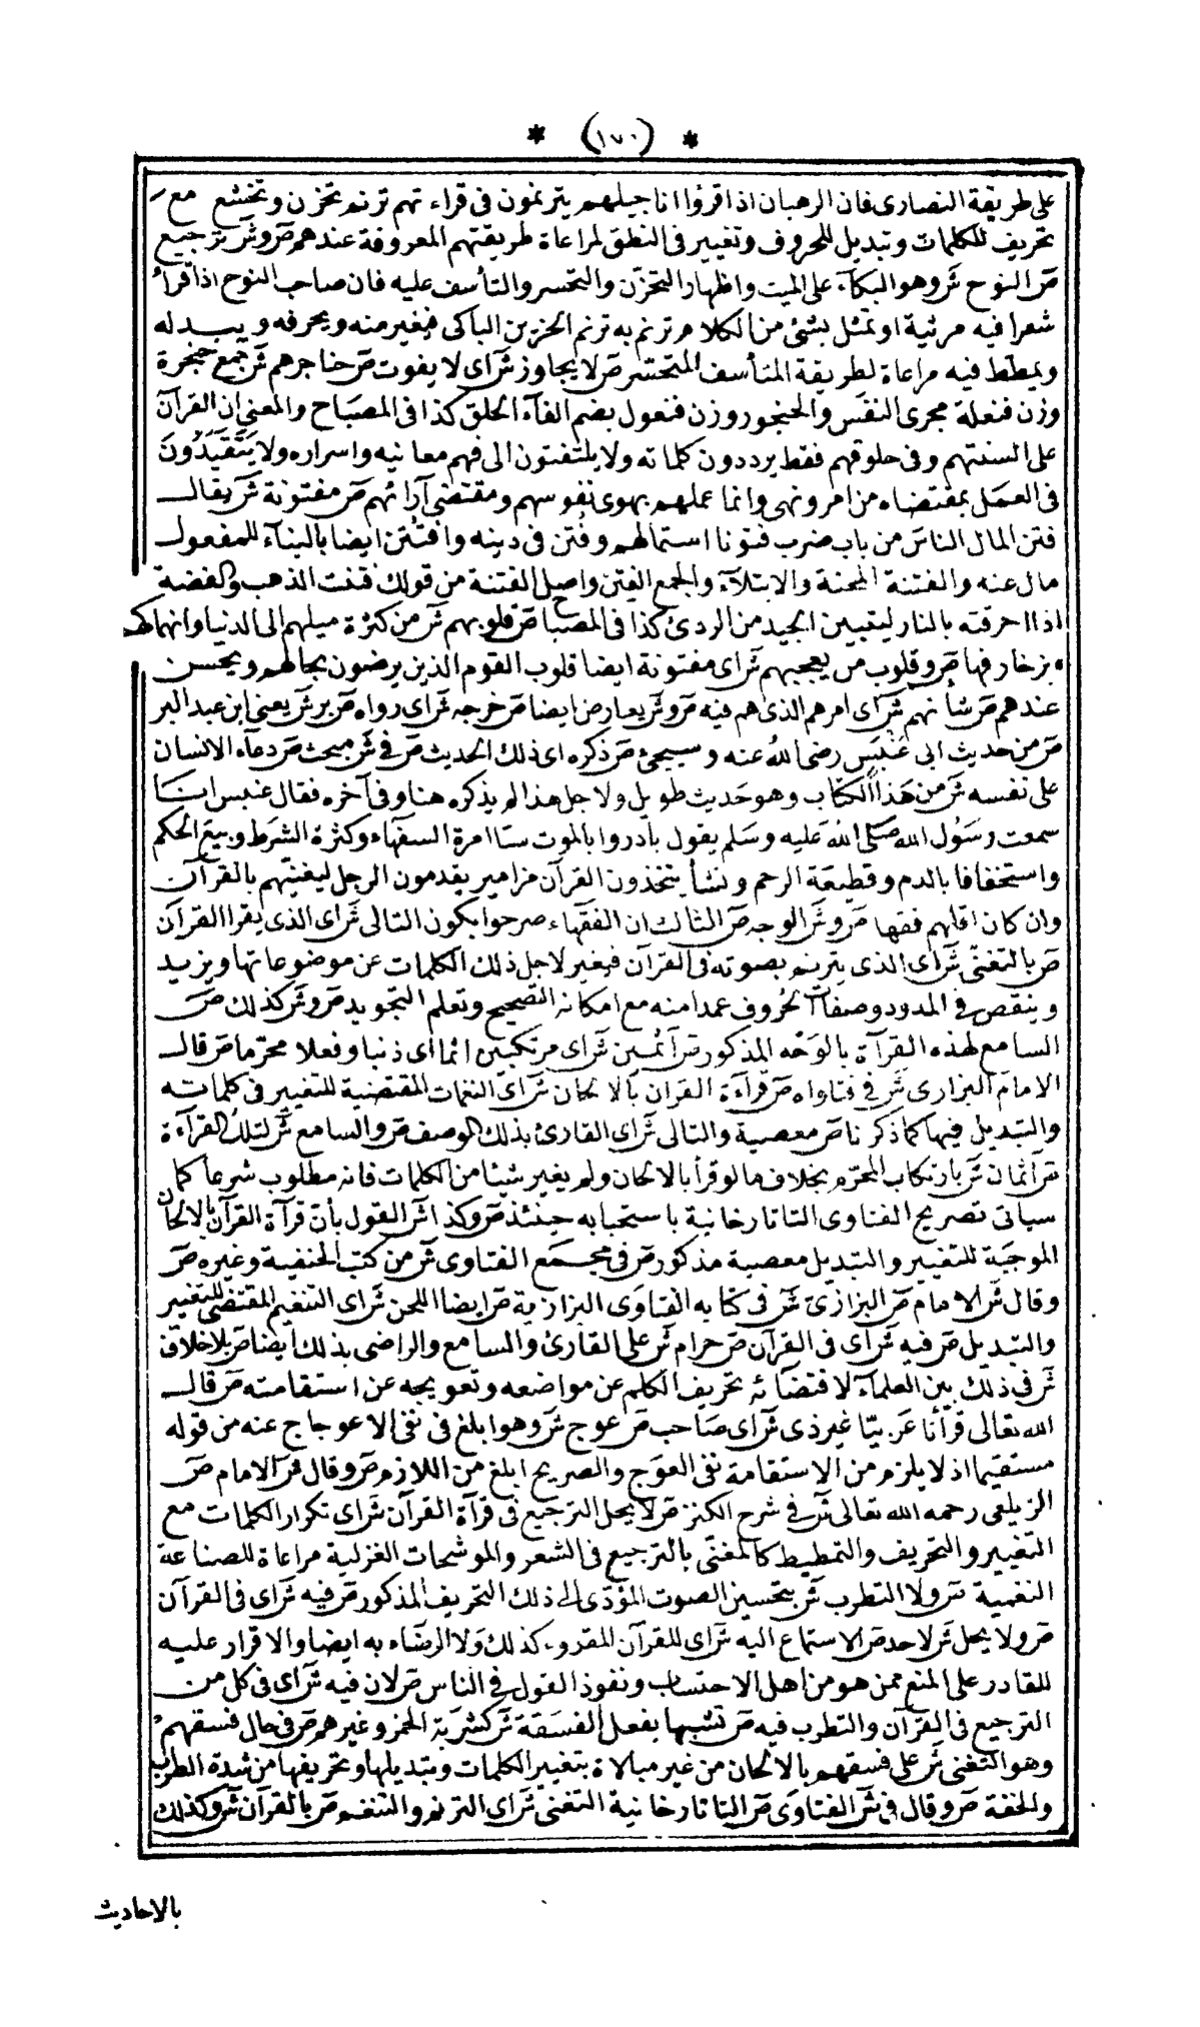 * (١٧٠) *
على طريقة النصارى فان الرهبان اذا قرؤا اناجيلهم يترنمون فى قراءتهم ترنم تحزن وتخشع مع
تحريف للكلمات وتبديل للحروف وتغيير فى النطق لمراعاة طريقتهم المعروفة عندهم ص و ش بترجيع
ص النوح ش وهو البكآء على الميت واظهار التحزن والتحسر والتأسف عليه فان صاحب النوح اذا قرأ
شعرا فيه مرثية او تمثل بشئ من الكلام ترنم به ترنم الحزين الباكى فيغير منه ويحرفه ويبدله
ويمطط فيه مراعاة لطريقة المتأسف المتحسر ص لا يجاوز ش اى لا يفوت ص حناجرهم ش جمع حنجرة
وزن فنعلة مجرى النفس والحنجور وزن فنعول بضم الفآء الحلق كذا فى المصباح والمعنى ان القرآن
على السنتهم وفى حلوقهم فقط يرددون كلماته ولا يلتفتون الى فهم معانيه واسراره ولا يتقيدون
فى العمل بمقتضاه من امر ونهى وانما عملهم بهوى نفوسهم ومقتضى آرائهم ص مفتونة ش يقال
فتن المال الناس من باب ضرب فتونا استمالهم وفتن فى دينه وافتتن ايضا بالبنآء للمفعول
مال عنه والفتنة المحنة والابتلآء والجمع الفتن واصل الفتنة من قولك فتنت الذهب والفضة
اذا احرقته بالنار ليتبين الجيد من الردئ كذا فى المصباح ص قلوبهم ش من كثرة ميلهم الى الدنيا وانهماكهم
بزخارفها ص وقلوب من يعجبهم ش اى مفتونة ايضا قلوب القوم الذين يرضون بحالهم ويحسن
عندهم ص شأنهم ش اى امرهم الذى هم فيه ص و ش يعارض ايضا ص خرجه ش اى رواه ص بر ش يعنى ابن عبد البر
ص من حديث ابى عنبس رضى الله عنه وسيجئ ص ذكره اى ذلك الحديث ص فى ش مبحث ص دعآء الانسان
على نفسه ش من هذا الكتاب وهو حديث طويل ولاجل هذا لم يذكره هنا وفى آخره فقال عنبس انا
سمعت رسول الله صلى الله عليه وسلم يقول بادروا بالموت ستا امرة السفهآء وكثرة الشرط وبيع الحكم
واستخفافا بالدم وقطيعة الرحم ونشأ يتخذون القرآن مزامير يقدمون الرجل ليغنيهم بالقرآن
وان كان اقلهم فقها ص و ش الوجه ص الثالث ان الفقهآء صرحوا بكون التالى ش اى الذى يقرا القرآن
ص بالتغنى ش اى الذى يترنم بصوته فى القرآن فيغير لاجل ذلك الكلمات عن موضوعاتها ويزيد
وينقص فى المدود وصفات الحروف عمدا منه مع امكانه التصحيح وتعلم التجويد ص و ش كذلك ص
السامع لهذه القرآة بالوجه المذكور ش آثمين ش اى مرتكبين اثما اى ذنبا وفعلا محرما ص قال
الامام البزازى ش فى فتاواه ص قرآءة القران بالالحان ش اى النغمات المقتضية للتغيير فى كلماته
والتبديل فيها كما ذكرنا ص معصية والتالى ش اى القارئ بذلك الوصف ص والسامع ش لتلك القرآءة
ص آثمان ش بارتكاب المحرم بخلاف ما لو قرأ بالالحان ولم يغير شيئا من الكلمات فانه مطلوب شرعا كما
سيأتى تصريح الفتاوى التاتارخانية باستحبابه حينئذ ص وكذا ش القول بأن قرآة القرآن بالالحان
الموجبة للتغيير والتبديل معصية مذكور ص فى مجمع الفتاوى ش من كتب الحنفية وغيره ص
وقال ش الامام ص البزازى ش فى كتابه الفتاوى البزازية ص ايضا اللحن ش اى التنغيم المقتضى للتغيير
والتبديل ص فيه ش اى فى القرآن ص حرام ش على القارئ والسامع والراضى بذلك ايضا ص بلا خلاف
ش فى ذلك بين العلمآء لاقتضآئه تحريف الكلم عن مواضعه وتعويجه عن استقامته ص قال
الله تعالى قرآنا عربيا غير ذى ش اى صاحب ص عوج ش وهو ابلغ فى نفى الاعوجاج عنه من قوله
مستقيما اذ لا يلزم من الاستقامة نفى العوج والصريح ابلغ من اللازم ص وقال ش الامام ص
الزيلعى رحمه الله تعالى ش فى شرح الكنز ص لا يحل الترجيع فى قرآة القرآن ش اى تكرار الكلمات مع
التغيير والتحريف والتمطيط كالمغنى بالترجيع فى الشعر والموشحات الغزلية مراعاة للصناعة
النغمية ص ولا التطرب ش بتحسين الصوت المؤدى الى ذلك التحريف المذكور ص فيه ش اى فى القرآن
ص ولا يحل ش لاحد ص الاستماع اليه ش اى للقرآن المقروء كذلك ولا الرضاء به ايضا والاقرار عليه
للقادر على المنع ممن هو من اهل الاحتساب ونفوذ القول فى الناس ص لان فيه ش اى فى كل من
الترجيع فى القرآن والتطرب فيه ص تشبها بفعل الفسقة ش كشربة الخمر وغيرهم ص فى حال فسقهم
وهو التغنى ش على فسقهم بالالحان من غير مبالاة بتغيير الكلمات وتبديلها وتحريفها من شدة الطرب
والخفة ص وقال فى ش الفتاوى ص التاتارخانية التغنى ش اى الترنم والتنغم ص بالقرآن ش وكذلك
بالاحاديث